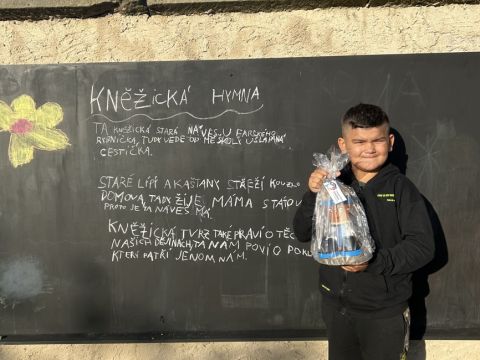 KNĚŽICKÁ HYMNA
TA KNĚŽICKÁ STARÁ NÁVES, JU FARSKÉHO
RYBNÍČKA, TUDY VEDE OD NE ŠKOLY UŠLAPANÁ
CESTIČKA.
STARÉ LÍPI A KAŠTANY STŘEŽÍ KOUZLO
DOMOVA, TADY ŽIJE MÁMA S TÁTOU
PROTO JE TA NÁVES MÁ.
KNĚŽICKÁ TVRZ TAKÉ PRAVÍ O TĚC
NAŠICH DĚJINÁCH, TA NÁM POVÍ O POKL
KTERÍ PATŘÍ JENOM NÁM.